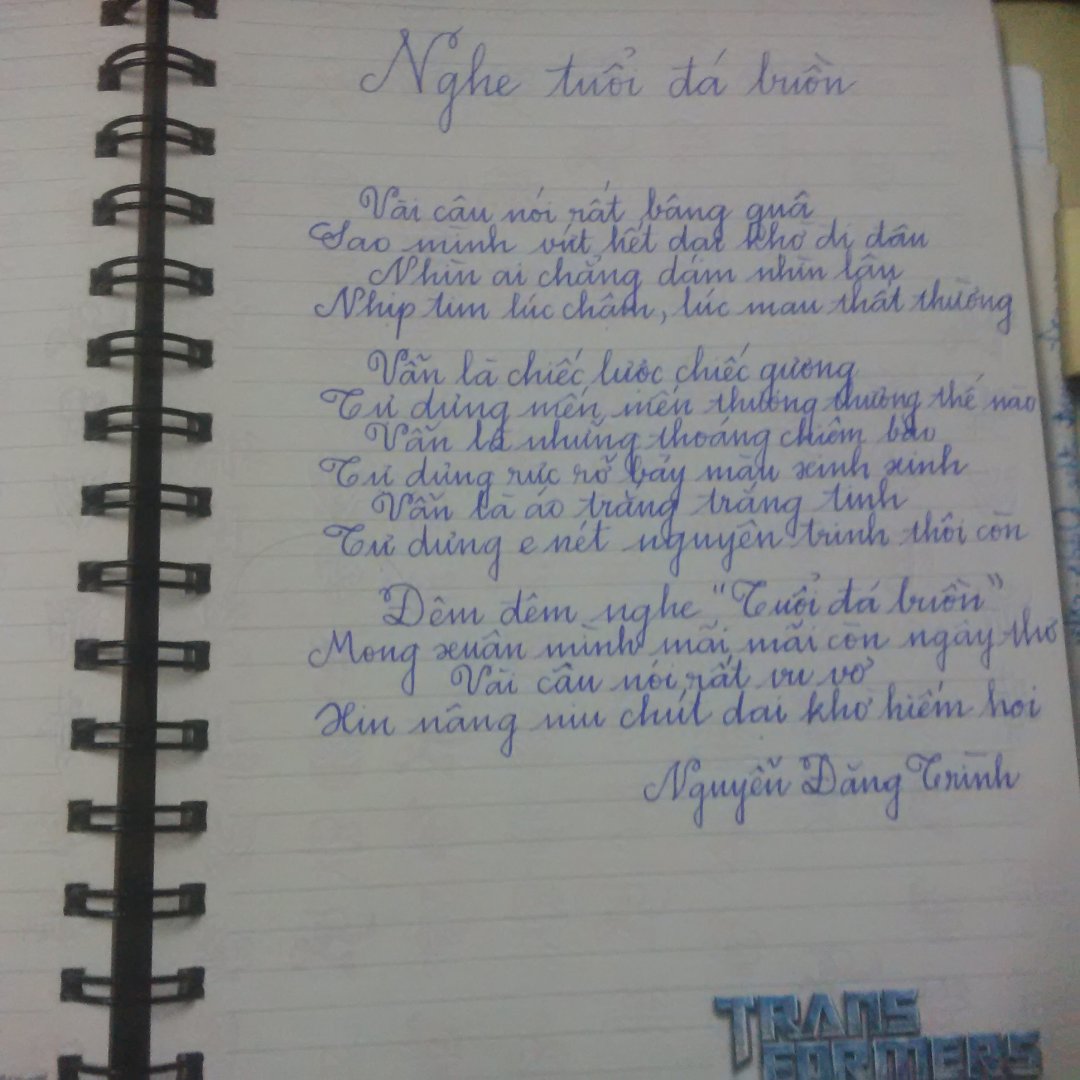 Nghe tuổi đá buồn
Vài câu nói rất bâng quâ
Sao mình vứt hết dại khờ đi đâu
Nhìn ai chẳng dám nhìn lâu
Nhịp tim lúc chậm, lúc mau thất thường
Vẫn là chiếc lược chiếc gương
Tự dưng mến, mến thương thương thế nào
Vẫn là những thoáng chiêm bao
Tự dưng rực rỡ bảy màu xinh xinh
Vẫn là áo trắng trắng tinh
Tự dưng e nét nguyên trinh thôi còn
Đêm đêm nghe "Tuổi đá buồn"
Mong xuân mình mãi mãi còn ngây thơ
Vài câu nói rất vu vơ
Xin nâng niu chút dại khờ hiếm hoi
Nguyễn Đăng Trình
TRANS
FORMERS